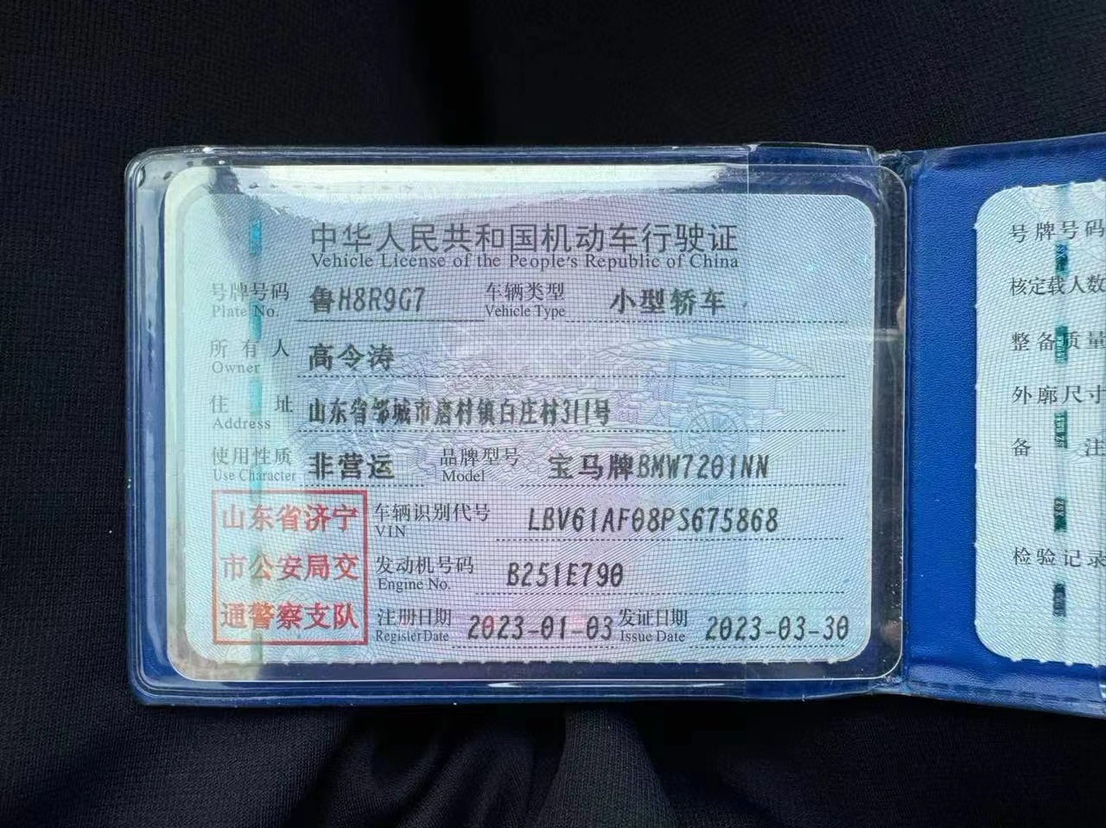 中华人民共和国机动车行驶证
Vehicle License of the People's Republic of China
号牌号码 鲁H8R9G7 车辆类型 小型轿车
Plate No. Vehicle Type
所有人 高令涛
Owner
住址 山东省邹城市唐村镇白庄村311号
Address
使用性质 非营运 品牌型号 宝马牌BMW7201NN
Use Character Model
山东省济宁
市公安局交
通警察支队
车辆识别代号 LBV61AF08PS675868
VIN
发动机号码 B251E790
Engine No.
注册日期 2023-01-03 发证日期 2023-03-30
Register Date Issue Date
号牌号码
核定载人数
整备质量
外廓尺寸
备注
检验记录